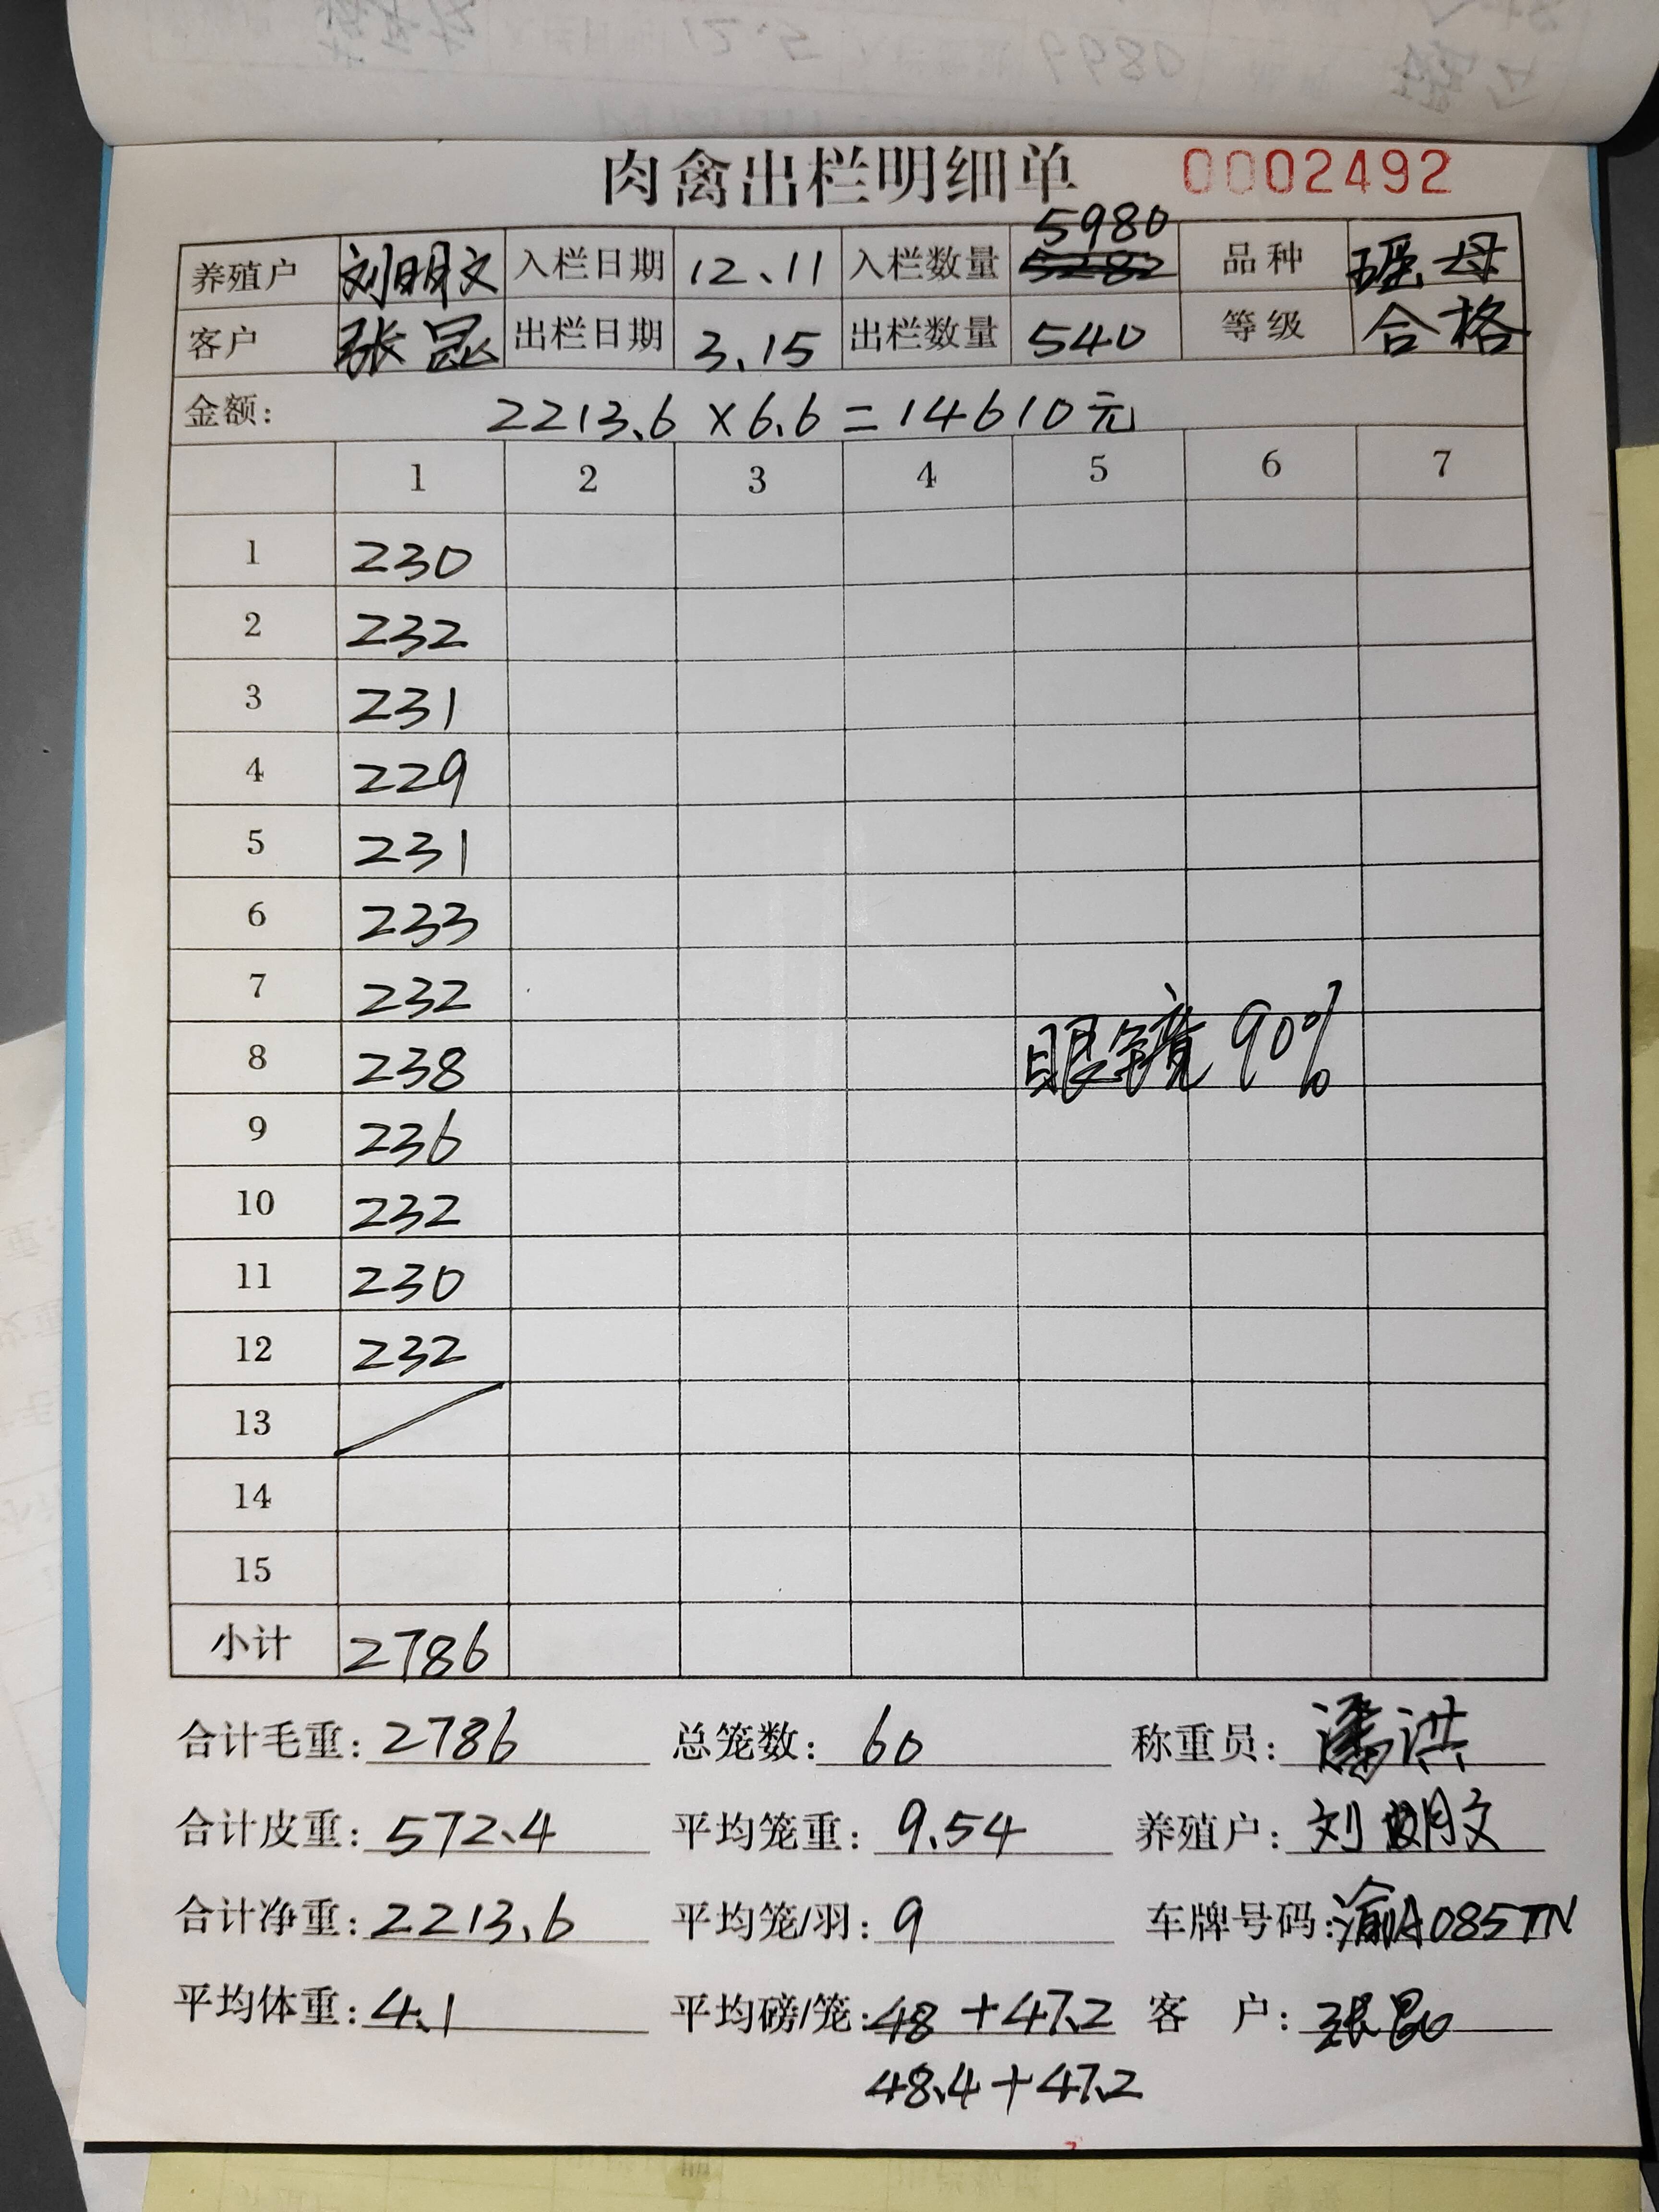 肉禽出栏明细单 0002492
5980
养殖户 刘明文 入栏日期 12、11 入栏数量 品种 瑶母
客户 张昆 出栏日期 3、15 出栏数量 540 等级 合格
金额: 2213.6 × 6.6 = 14610元
1 2 3 4 5 6 7
1 230
2 232
3 231
4 229
5 231
6 233
7 232
8 238 眼镜 90%
9 236
10 232
11 230
12 232
13
14
15
小计 2786
合计毛重: 2786 总笼数: 60 称重员: 潘洪
合计皮重: 572.4 平均笼重: 9.54 养殖户: 刘明文
合计净重: 2213.6 平均笼/羽: 9 车牌号码: 渝A085TN
平均体重: 4.1 平均磅/笼: 48 + 47.2 客 户: 张昆
48.4 + 47.2